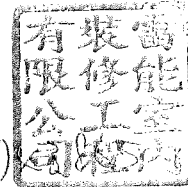 能室内
装修工程
有限公司